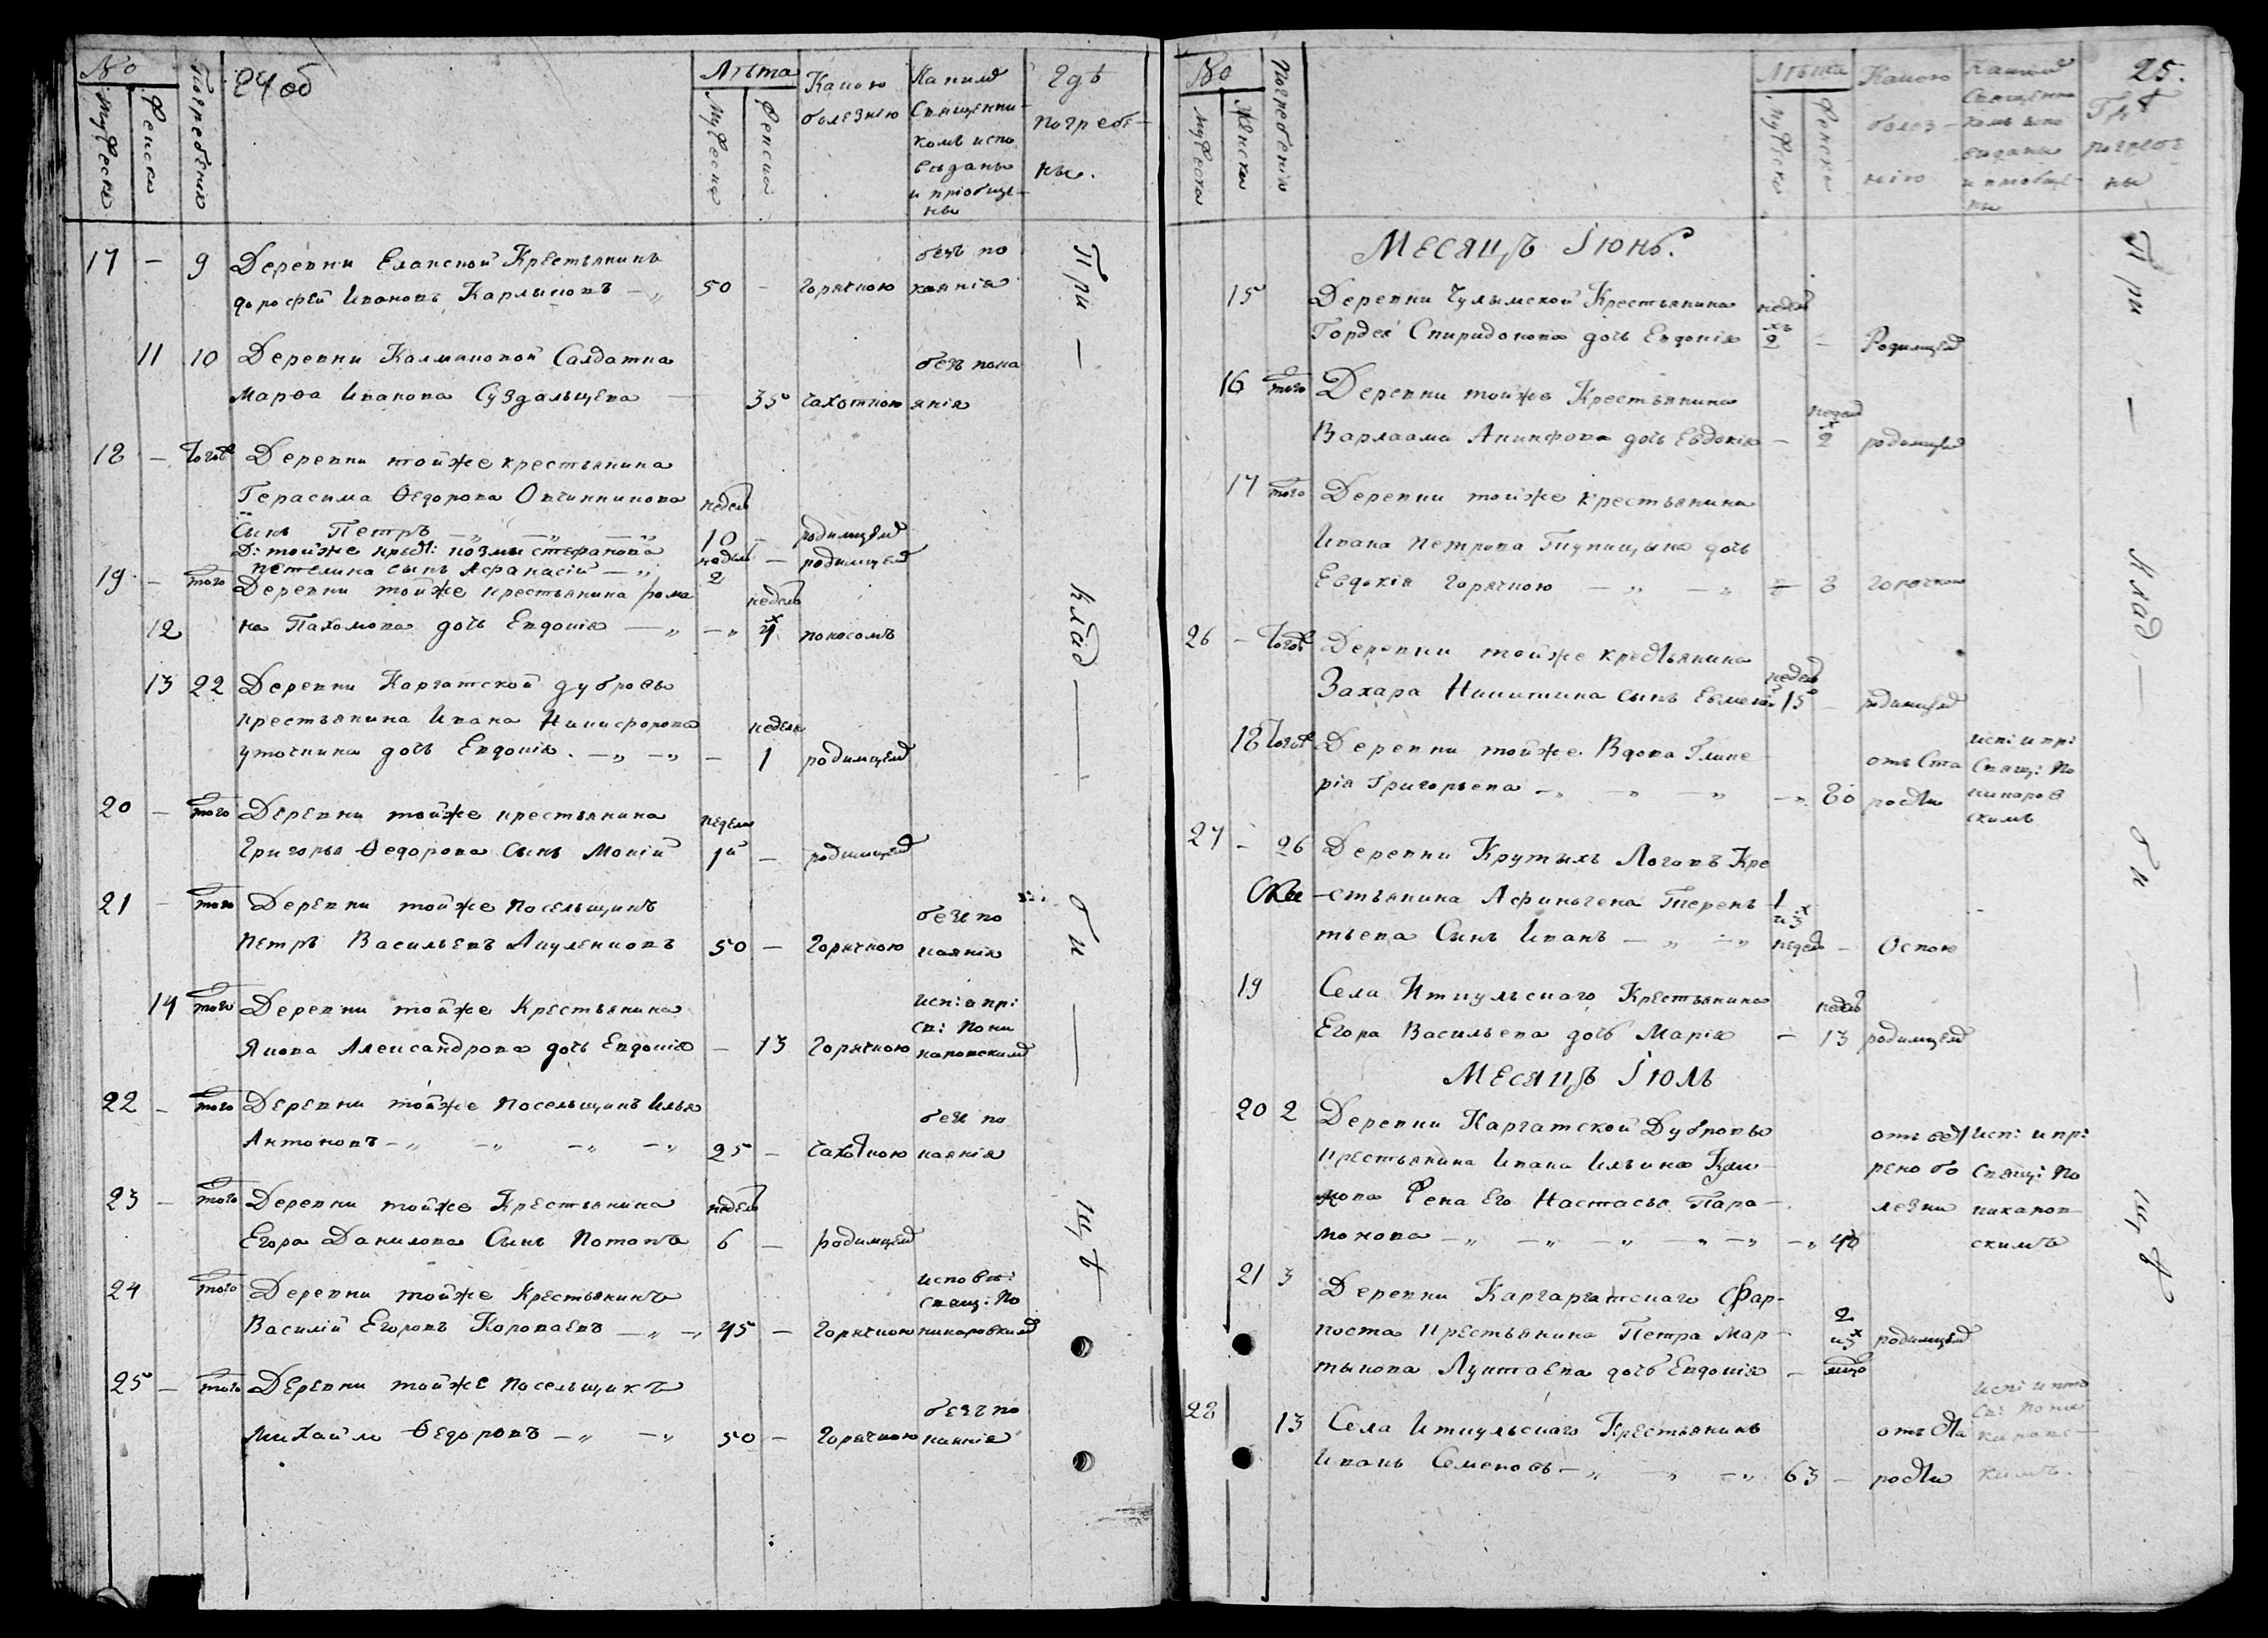 №
24 об
мужеска
женска
Погребенія
Лѣта
мужеска
женска
Какою
болезнію
Каким
Священни-
комъ испо
вѣданы
и пріобще-
ны
Гдѣ
погребе-
ны.
17 — 9 Деревни Еланской Крестьянинъ
дорофей Ивановъ Карлыковъ — „ 50 — горячкою
безъ по
каянія
11 10 Деревни Калмаковой Салдатка
марѳа Иванова Суздальцева — 35 чахоткою
безъ пока
янія
18 — Тогоже Деревни тойже крестьянина
Герасима Ѳедорова Овчинникова
Сынъ Петръ — „ — „ — „ недель 10 — родимцем
Д: тойже крест: козмы стефанова
петелина сынъ Афанасій — „ недель 2 — родимцем
19 — того Деревни тойже крестьянина рома
12 на Пахомова дочь Евдокія — „ — „ недель 4 поносомъ
13 22 Деревни Каргатской дубровы
крестьянина Ивана Никифорова
уточкина дочь Евдокія. — „ — „ — неделя 1 родимцем
20 — того Деревни тойже крестьянина
Григорья Ѳедорова Сынъ Мокій неделя 1 — родимцем
21 — того Деревни тойже посельщикъ
Петръ Васильевъ Акуленковъ 50 — Горячкою
безъ по
каянія
14 того Деревни тойже Крестьянина
Якова Александрова дочь Евдокія — 13 Горячкою
исп: и пр:
св: Пони
каровским
22 — того Деревни тойже Посельщикъ Илья
Антоновъ — „ — „ — „ — „ 25 — чахоткою
безъ по
каянія
23 — того Деревни тойже Крестьянина
Егора Данилова Сынъ Потапъ недель 6 — родимцем
24 того Деревни тойже Крестьянинъ
Василій Егоровъ Короваевъ — „ — „ 45 — Горячкою
исповѣ:
свящ: По
никаровским
25 — того Деревни тойже посельщикъ
Михайло Ѳедоровъ — „ — „ 50 — Горячкою
безъ по
каянія
При — клад — би — щѣ
№
мужеска
женска
Погребенія
Лѣта
мужеска
женска
Какою
болез-
нію
Каким
Священни
комъ испо
вѣданы
и пріобще-
ны
25.
Гдѣ
погребе
ны
Месяцъ Іюнь.
15 Деревни Чулымской Крестьянина
Гордея Спиридонова дочь Евдокія неделяхъ 2 — Родимцем
16 того Деревни тойже Крестьянина
Варлаама Аникфова дочь Евдокія — недел х 2 родимцем
17 того Деревни тойже крестьянина
Ивана петрова дочь
Евдокія горячкою — „ — „ — 3 горячкою
26 — Тогоже Деревни тойже крестьянина
Захара Никитина сынъ недель 15 — родимцем
18 Тогоже Деревни тойже Вдова Глике
рія Григорьева — „ — „ — „ 80
отъ Ста
рости
исп: и пр:
Свящ: По
никаров
скимъ
27 — 26 Деревни Крутыхъ Логовъ Кре
-стьянина Афиногена Терен
тьева Сынъ Иванъ — „ — „ 1 и 3 х недел — Оспою
19 Села Иткульскаго Крестьянина
Егора Васильева дочь Марія — недель 13 родимцем
Месяцъ Іюль
20 2 Деревни Каргатской Дубровы
крестьянина Ивана Ильина Кли-
мова жена Его Настасья Пара-
монова — „ — „ — „ — „ — „ — „ 40
рено бо
лезни
исп: и пр:
Свящ: По
никаров
скимъ
21 3 Деревни Каргаргатскаго Фар-
поста крестьянина Петра Мар-
тынова Лунтаева дочь Евдокія — 2 родимцем
28 13 Села Иткульскаго Крестьянинъ
Иванъ Семеновъ — „ — „ — „ 63 —
отъ Ста
рости
исп: и прі
св: Пони
каровс-
кимъ.
При — Клад — би — щѣ